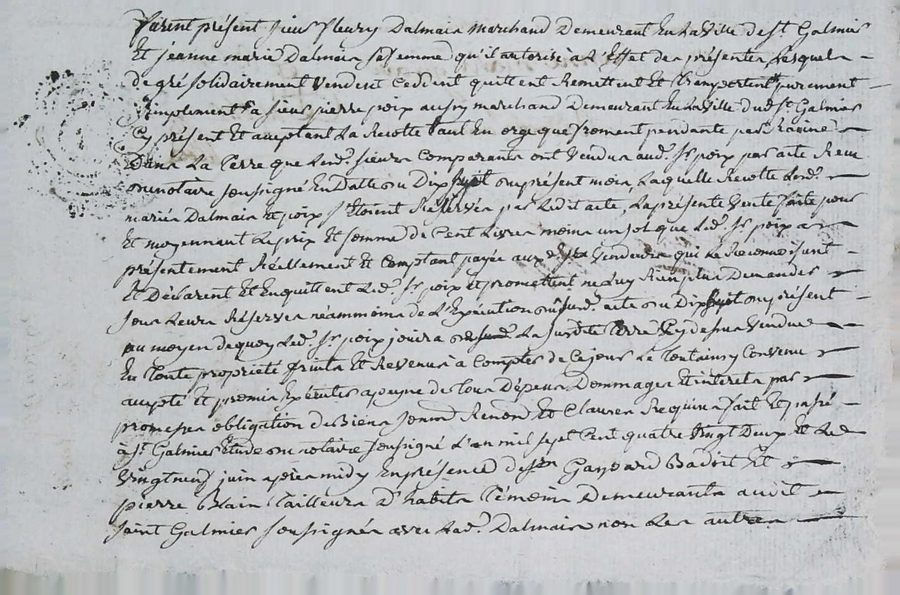 furent présent sieur fleury Dalmais Marchand Demeurant En la Ville de st Galmier
Et jeanne marie Dalmais sa femme qu'il autorise à l'Effet des présentes Lesquels
de gré solidairement Vendent Cedent quittent Remettent Et Transportent purement
Et simplement a sieur pierre poix aussy marchand Demeurant En la Ville dud. st Galmier
Cy présent Et acceptant La Recolte tant En orge que froment pendante par Racine
Dans La Terre que Lesd. sieurs Comparants ont Vendus aud. sr poix par acte Reçu
du notaire soussigné En Datte du Dix huit du présent mois, Laquelle Recolte Lesd.
mariés Dalmais Et poix s'Etoient Reservée par Ledit acte, La présente Vente faite pour
Et moyennant Le prix Et somme de Cent Livres moins un sol que Led. sr poix a
présentement Réellement Et Comptant payée aux dits Vendeurs qui Le Reconnoissent
Et Déclarent Et En quittent Led. sr poix Et promettent ne Luy Rien plus Demander
sous Leurs Réserves néanmoins de L'Exécution dud. acte du Dix huit du présent
au moyen de quoy Led. sr poix jouira de La susdite Terre Cy dessus Vendue
En Toute propriété fruits Et Revenus à Compter de Ce jour Le Tout ainsy Convenu
accepté Et promis Exécuter a peyne de Tous Dépens Dommages Et interets par
promesse obligation de Biens soum. Renon. Et Clauses Requises fait Et passé
à st Galmier Etude du notaire soussigné L'an mil sept Cent quatre Vingt Deux Et Le
Vingt neuf juin après midy En présence de srs Gaspard Badoit Et
pierre Blain Tailleurs D'habits Témoins Demeurants audit
Saint Galmier soussignés avec Led. Dalmais non Les autres